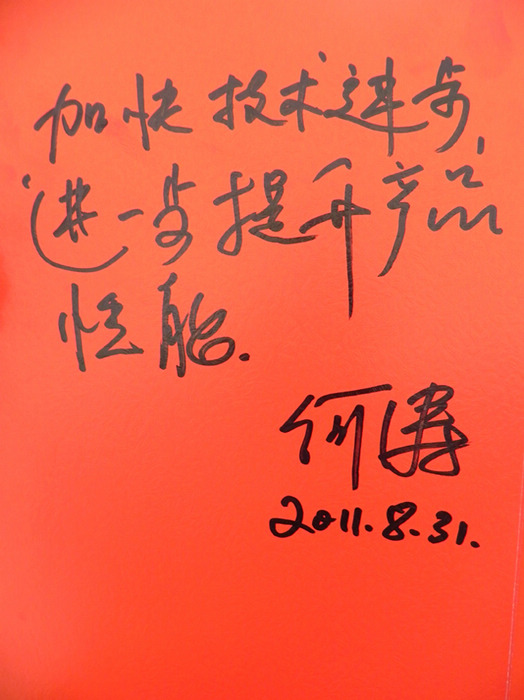 加快技术进步,
进一步提升产品
性能.
何涛
2011.8.31.